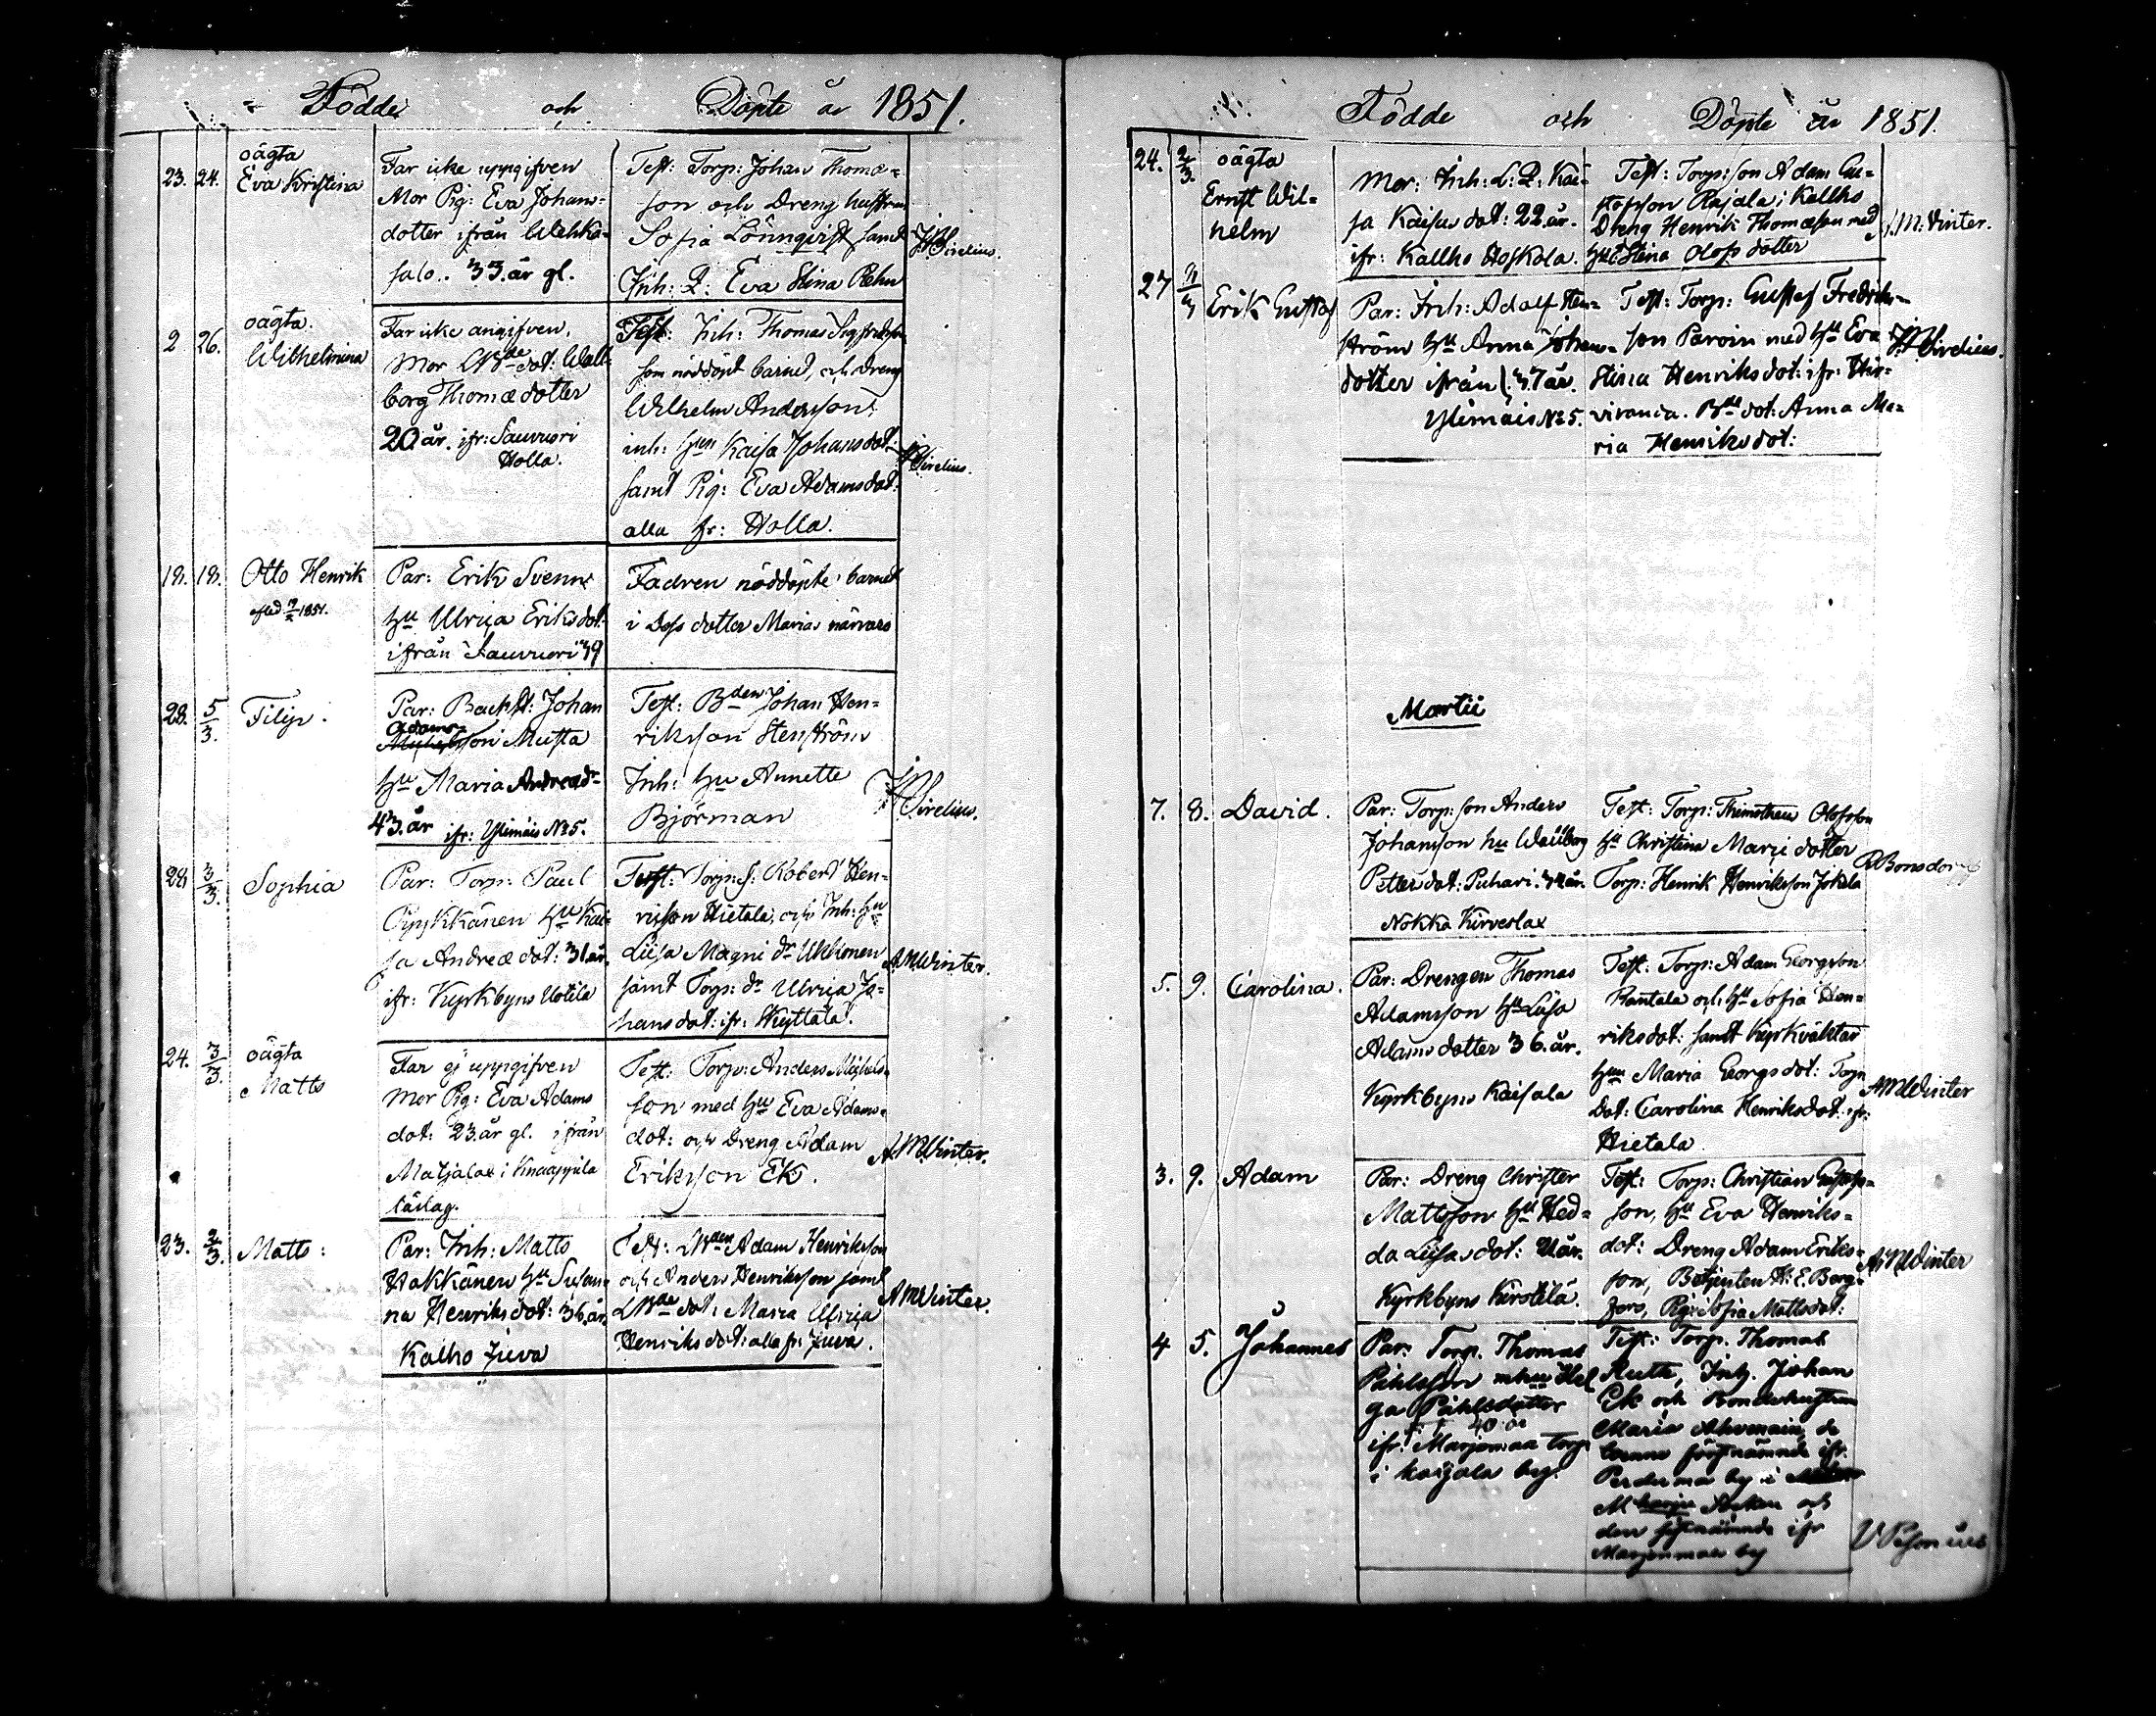 Födde och Döpte år 1851.
23. 24. oägta
Eva Kristina
Far icke uppgifven
Mor Pig: Eva Johans-
dotter ifrån Wehka-
salo. 33. år gl.
Test: Torp: Johan Thomæ-
son och Dreng hustrun
Sofia Lönnqvist samt
Inh: Eva Stina Rehn
Sirelius.
2 26. oägta.
Wilhelmina
Far icke angifven.
Mor dot: Wall-
borg Thomædotter
20 år. ifr: Sauvuori
Holla.
Test: Inh: Thomas Sigfredsson
som nöddöpt barnet, och dreng
Wilhelm Andersson,
inh: hun Kaisa Johansdot:
samt Pig: Eva Adamsdot:
alla fr: Holla.
Sirelius.
18. 18. Otto Henrik
1851.
Par: Erik Svenn
hu Ulrica Eriksdot.
ifrån Sauvuori 49
Fadren nöddöpte barnet
i Dess dotter Marias närvaro
28. 5/3. Filip.
Par: Backst: Johan
Adams-
son Musta
hu Maria Andreædr-
43. år ifr: Ylimäis No 5.
Test: Bden Johan Hen-
riksson Stenström
Inh: hu Annette
Björman
Sirelius.
28 3/3. Sophia
Par: Torp: Paul
Pyykkänen hu Kai-
sa Andreædot: 31. år.
ifr: Kyrkbyns Uotila
Test: Torp: S: Robert Hen-
ricsson Hietala, och Inh: hu
Liisa Magni dr Ukkonen
samt Torp: dr Ulrica Jo-
hansdot: ifr: Skyttälä.
A M Winter.
24. 3/3. oägta
Matts
Far ej uppgifven
Mor Pig: Eva Adams
dot: 23. år gl. ifrån
Matjalax i Knaapila
läslag.
Test: Torp: Anders Michels-
son med hu Eva Adams-
dot: och Dreng Adam
Eriksson Ek.
A M Winter.
23. 2/3. Matts:
Par: Inh: Matts
Hakkänen hu Susan-
na Henriksdot: 36. år
Kalho Juva
Test: Adam Henriksson
och Anders Henriksson samt
dot: Maria Ulrica
Henriksdot: alla fr: Juva.
A M Winter.
Födde och Döpte år 1851.
24. 2/3. oägta
Ernst Wil-
helm
Mor: Inh: L: P: Kai-
sa Kaisasdot: 22 år.
ifr: Kallho Hoskola.
Test: Torp: son Adam Gu-
stafsson Rajala i Kallho
Dreng Henrik Thomæson med
hu Stina Olofsdotter
M: Winter.
27 Erik Gustaf
Par: Inh: Adolf Sten-
ström hu Anna Johans-
dotter ifrån 37 år.
Ylimäis No 5.
Test: Torp: Gustaf Fredriks-
son Paroin med hu Eva
Stina Henriksdot: ifr: Hir-
viranda. Bde dot: Anna Ma-
ria Henriksdot:
Sirelius.
Martii
7. 8. David.
Par: Torp: son Anders
Johansson hu Wallborg
Petter dot: Puhari. 42 år.
Nokka Kirveslax
Test: Torp: Thimotheus Olofsson
hu Christina Marii dotter
Torp: Henrik Henriksson Jokela
Bonsdorff
5. 9. Carolina.
Par: Drengen Thomas
Adamsson hu Liisa
Adams dotter 36. år.
Kyrkbyns Kaisala
Test: Torp: Adam Georgsson
Rantala och hu Sofia Hen-
riksdot: samt Kyrkväktar
hun Maria Georgsdot: Torp
Dot: Carolina Henriksdot: ifr:
Hietala
A M Winter
3. 9. Adam
Par: Dreng Christer
Mattsson hu Hed-
da Liisasdot: år.
Kyrkbyns Kirstilä.
Test: Torp: Christian Gustafs-
son, hu Eva Henriks-
dot: Dreng Adam Eriks-
son, Betjenten H: E. Berg-
fors, Pig: Sofia Mattsdot:
A M Winter
4 5. Johannes
Par: Torp. Thomas
Påhlsson m hu Hel
ga Påhlsdotter
40 år
ifr: Marjomaa torp
i Kaijala by.
Test: Torp. Thomas
Ruth, Inh. Johan
Ek och Bondehustrun
Maria Ahvenain, de
förstnämnda ifr.
by i
M harju Socken och
den sistnämnda ifr
Marjonmaa by